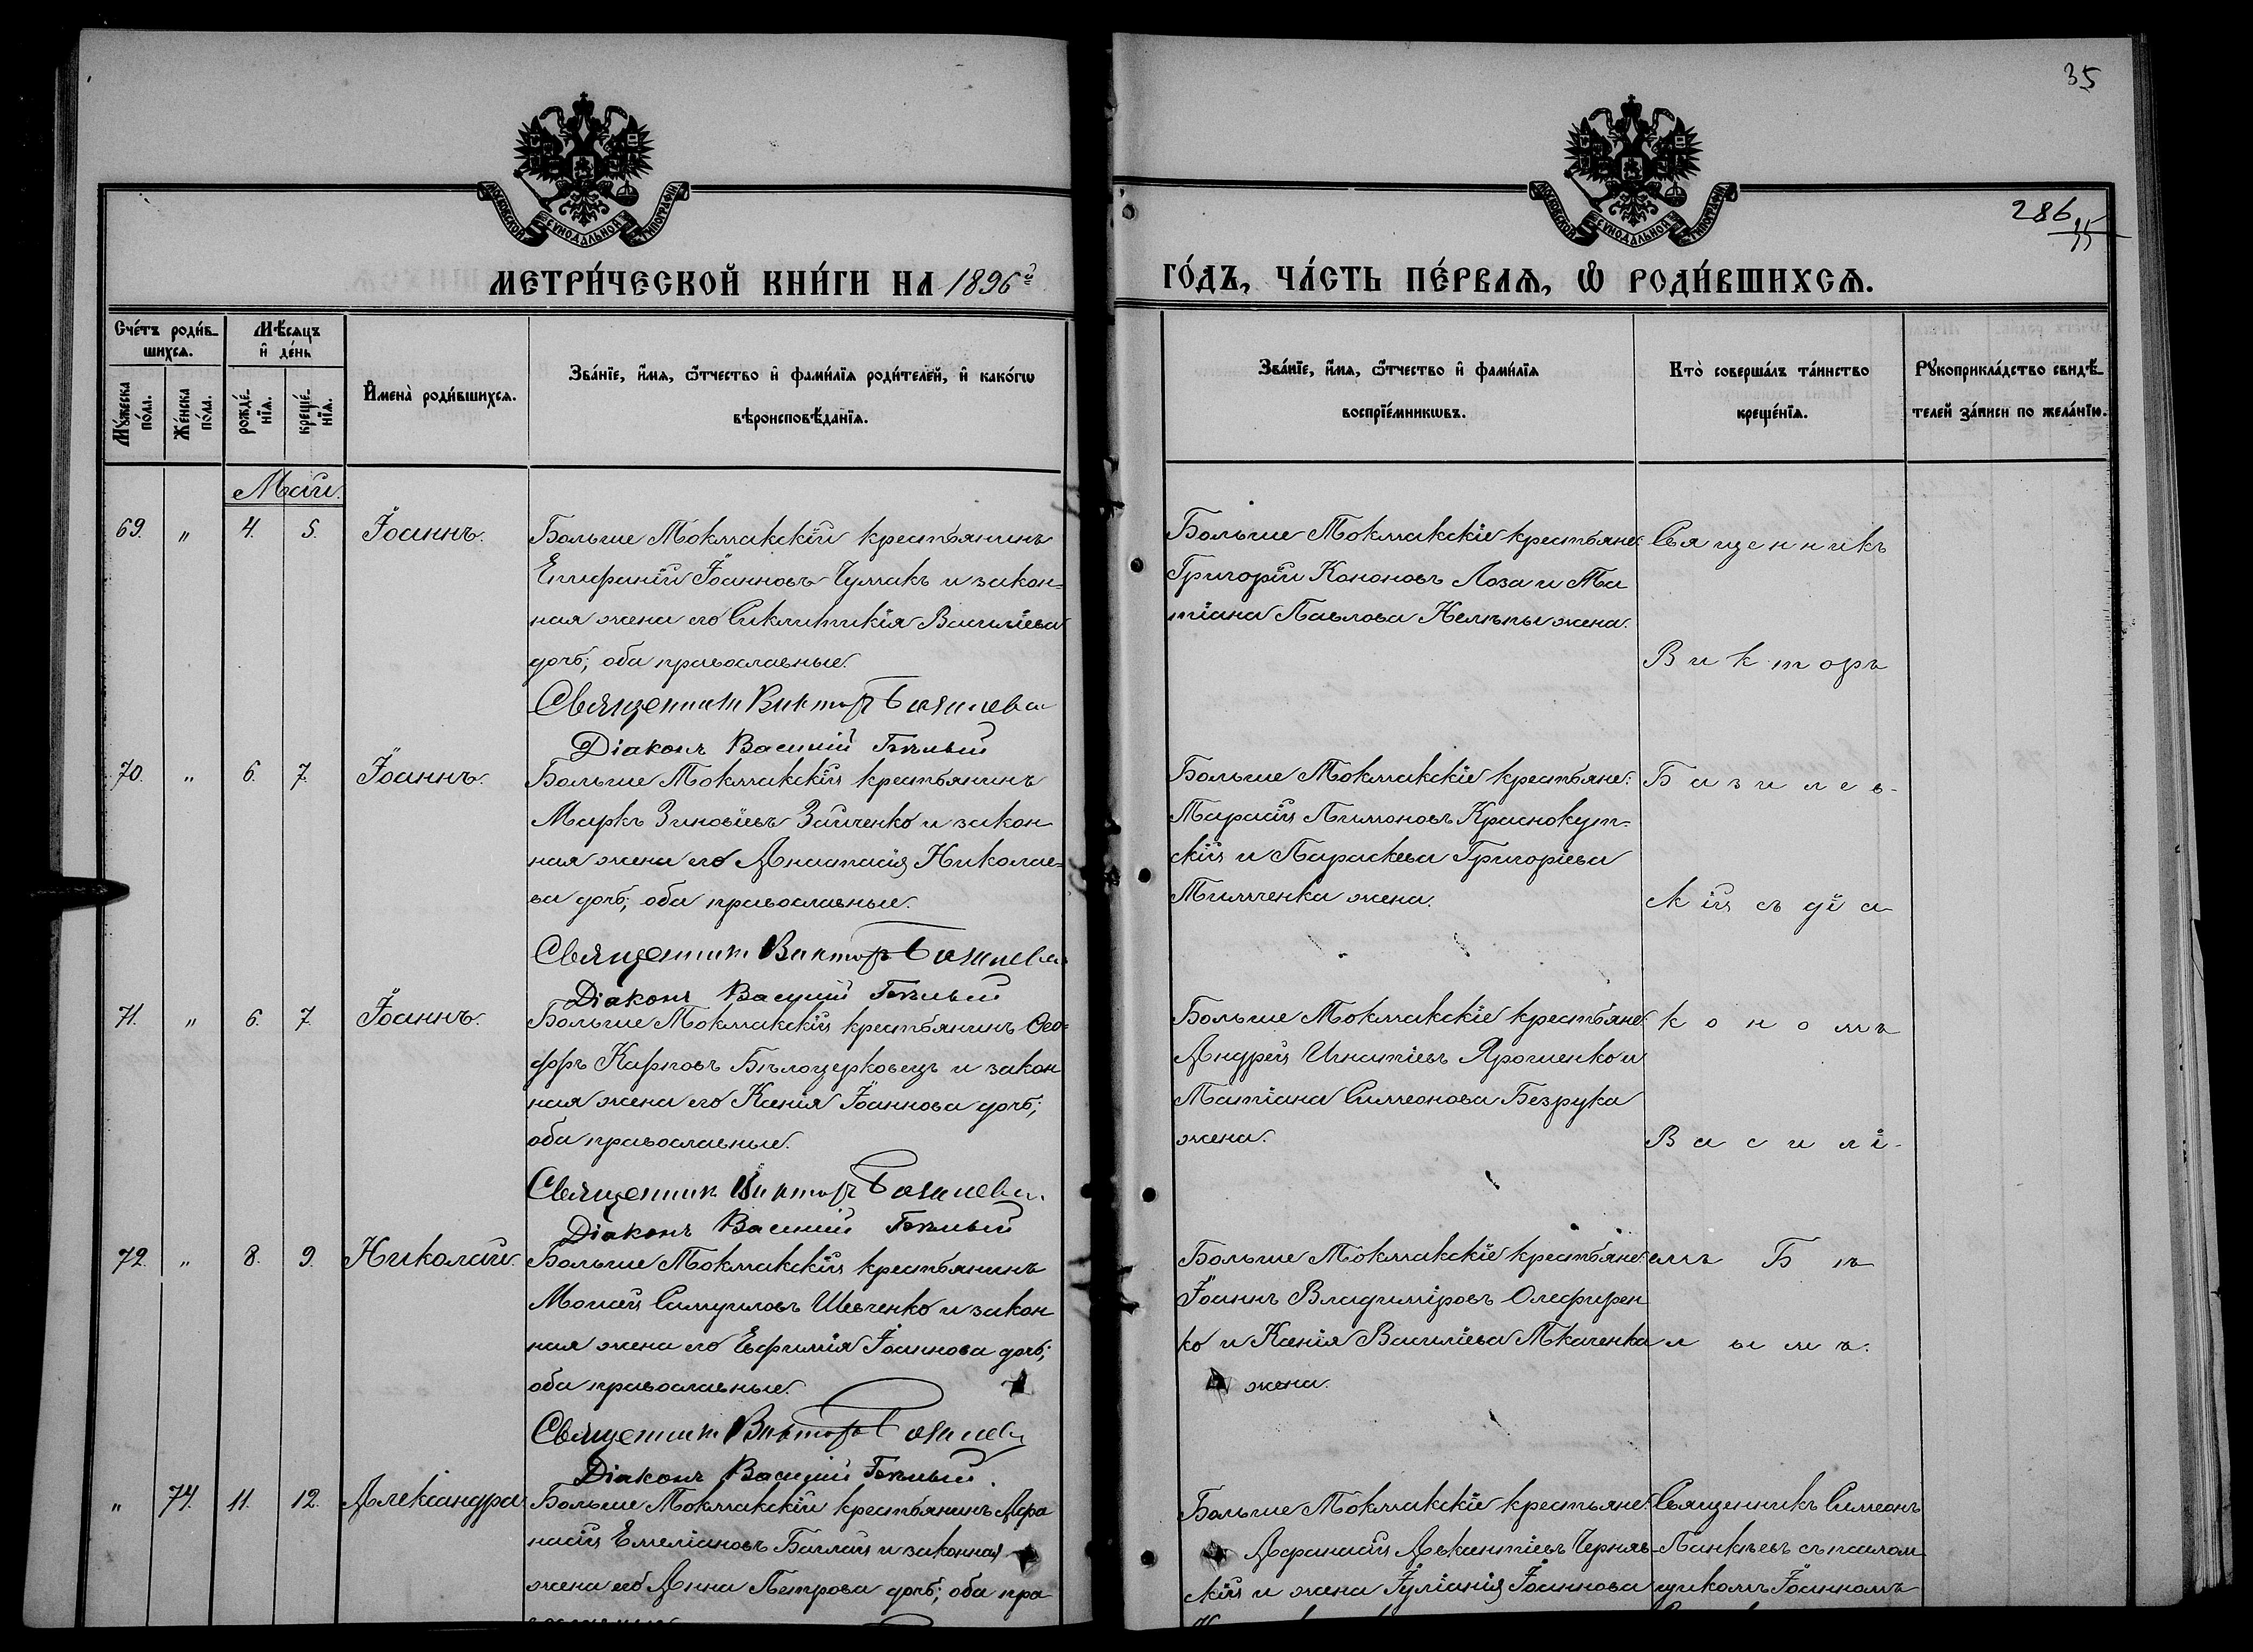 35
286
35
МОСКОВСКОЙ СѴНОДАЛЬНОЙ ТИПОГРАФІИ
МОСКОВСКОЙ СѴНОДАЛЬНОЙ ТИПОГРАФІИ
МЕТРИ́ЧЕСКОЙ КНИ́ГИ НА 1896й
ГО́ДЪ, ЧА́СТЬ ПЕ́РВАѦ, Ѡ҆ РОДИ́ВШИХСѦ.
Сче́тъ роди́в-
шихсѧ.
Мѣ́сяцъ
и҆ де́нь
Мꙋ́жеска
по́ла.
Же́нска
по́ла.
рожде́-
нїѧ.
креще́-
нїѧ.
И҆мена̀ роди́вшихсѧ.
Зва́нїе, и҆́мѧ, ѻ҆́тчество и҆ фами́лїѧ роди́телей, и҆ како́гѡ
вѣроисповѣ́данїѧ.
Зва́нїе, и҆́мѧ, ѻ҆́тчество и҆ фами́лїѧ
воспрїе́мникѡвъ.
Кто̀ соверша́лъ та́инство
креще́нїѧ.
Рꙋкоприкла́дство свидѣ́-
телей за́писи по жела́нїю.
Май.
69. " 4. 5. Іоаннъ.
Больше Токмакскій крестьянинъ
Епифаній Іоанновъ Чумакъ и закон=
ная жена его Сиклитикія Василіева
дочь; оба православные.
Священникъ Викторъ Базилев
Діаконъ Василій Бѣлый
Больше Токмакскіе крестьяне:
Григорій Кононовъ Лоза и Та
тіана Павлова Нелѣпы жена.
Священникъ
Викторъ
70. " 6. 7. Іоаннъ.
Больше Токмакскій крестьянинъ
Маркъ Зиновіевъ Зайченко и закон
ная жена его Анастасія Николае=
ва дочь; оба православные.
Священникъ Викторъ Базилев
Діаконъ Василій Бѣлый
Больше Токмакскіе крестьяне:
Тарасій Пимоновъ Краснокут-
скій и Параскева Григоріева
Тимченка жена.
Базилев-
скій съ діа
71. " 6. 7. Іоаннъ.
Больше Токмакскій крестьянинъ Ѳео=
доръ Карповъ Бѣлоцерковецъ и закон
ная жена его Ксенія Іоаннова дочь;
оба православные.
Священникъ Викторъ Базилев
Діаконъ Василій Бѣлый
Больше Токмакскіе крестьяне:
Андрей Игнатіевъ Ярошенко и
Татіана Симеонова Безрука
жена.
кономъ
Василі-
72. " 8. 9. Николай.
Больше Токмакскій крестьянинъ
Моисей Самуиловъ Шевченко и закон
ная жена его Евфимія Іоаннова дочь;
оба православные.
Священникъ Викторъ Базилев
Діаконъ Василій Бѣлый
Больше Токмакскіе крестьяне:
Іоаннъ Владиміровъ Олефирен
ко и Ксенія Василіева Ткаченка
жена.
емъ Бѣ
лымъ.
" 74. 11. 12. Александра
Больше Токмакскій крестьянинъ Аѳа
насій Емеліановъ Баглай и законная
жена его Анна Петрова дочь; оба пра
Больше Токмакскіе крестьяне:
Аѳанасій Авксентіевъ Черняв-
скій и жена Іуліанія Іоаннова
Священникъ Симеонъ
Панкѣевъ съ псалом
щикомъ Іоанномъ